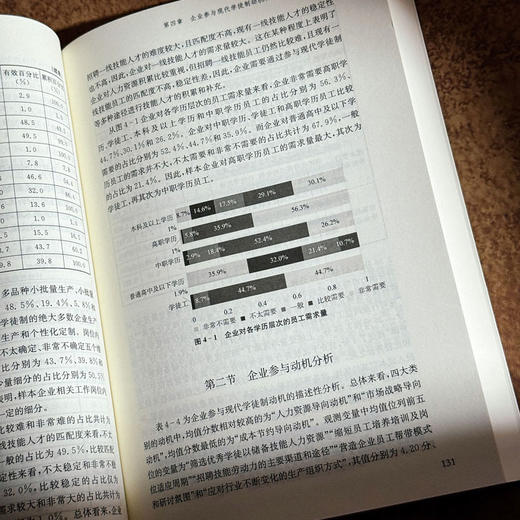 第四章 企业参与现代学徒制动机
招聘一线技能人才的难度较大,且匹配度不高,现有一线技能人才的稳定性
也不高,因此,企业对一线技能人才的需求量较大。这在某种程度上表明了
企业对人力资源积累比较重视,但招聘一线技能员工仍然比较难,且现有一
线技能员工的匹配度不高,稳定性差,因此,企业需要通过参与现代学徒制
等多种途径进行技能人才的积累和补充。
从图4-1企业对各学历层次的员工需求量来看,企业非常需要高职学
历、学徒工、本科及以上学历和中职学历员工的占比分别为56.3%、
44.7%、30.1%和26.2%。企业对中职学历、学徒工和高职学历员工比较
需要的占比分别为52.4%、44.7%和35.9%。而企业对普通高中及以下学
历员工的需求并不大,不太需要和非常不需要的占比共计为67.9%,一般
的占比为21.4%。因此,样本企业对高职学历员工的需求量最大,其次为
学徒工,再其次为中职学历员工。
本科及以上学历 8.7% 14.6% 17.5% 29.1% 30.1%
高职学历 1% 5.8% 35.9% 56.3%
中职学历 1% 2.9% 18.4% 52.4% 26.2%
普通高中及以下学历 35.9% 32.0% 21.4% 10.7%
学徒工 1.9% 8.7% 44.7% 44.7%
0 0.2 0.4 0.6 0.8 1
非常不需要 不太需要 一般 比较需要 非常需要
图4-1 企业对各学历层次的员工需求量
第二节 企业参与动机分析
表4-4为企业参与现代学徒制动机的描述性分析。总体来看,四大类
别的动机中,均值分数相对较高的为“人力资源导向动机”和“市场战略导向
动机”,均值分数最低的为“成本节约导向动机”。观测变量中均值位列前五
位的变量为“筛选优秀学徒以储备技能人力资源”“缩短员工培养培训及岗
位适应周期”“招聘技能劳动力的主要渠道和途径”“营造企业员工帮带模式
和研讨氛围”和“应对行业不断变化的生产组织方式”,其值分别为4.20分、
131
有效百分比
(%)
2.9
1.0
48.5
49.5
1.0
7.8
32.0
48.5
10.7
1.0
43.7
39.8
100.0
多品种小批量生产、小批量
48.5%、19.4%、5.8%和
学徒制的绝大多数企业生产
生产和个性化定制。岗位内
不太确定、非常不确定五个维
比分别为43.7%、39.8%和
少量细分的占比分别为50.5%
表明,样本企业相关工作岗位内
一定的细分。
比较难和非常难的占比共计为
线技能人才的匹配度来看,不太
一般的占比为49.5%,比较匹配
定性来看,不太稳定和非常不稳
32.0%。比较稳定的占比仅为
需求较大和非常大的占比共计为